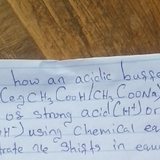 how an acidic buffe
(eg CH₃COOH/CH₃COONa
of strong acid (H⁺) or
OH⁻) using chemical e
trate the shifts in equ